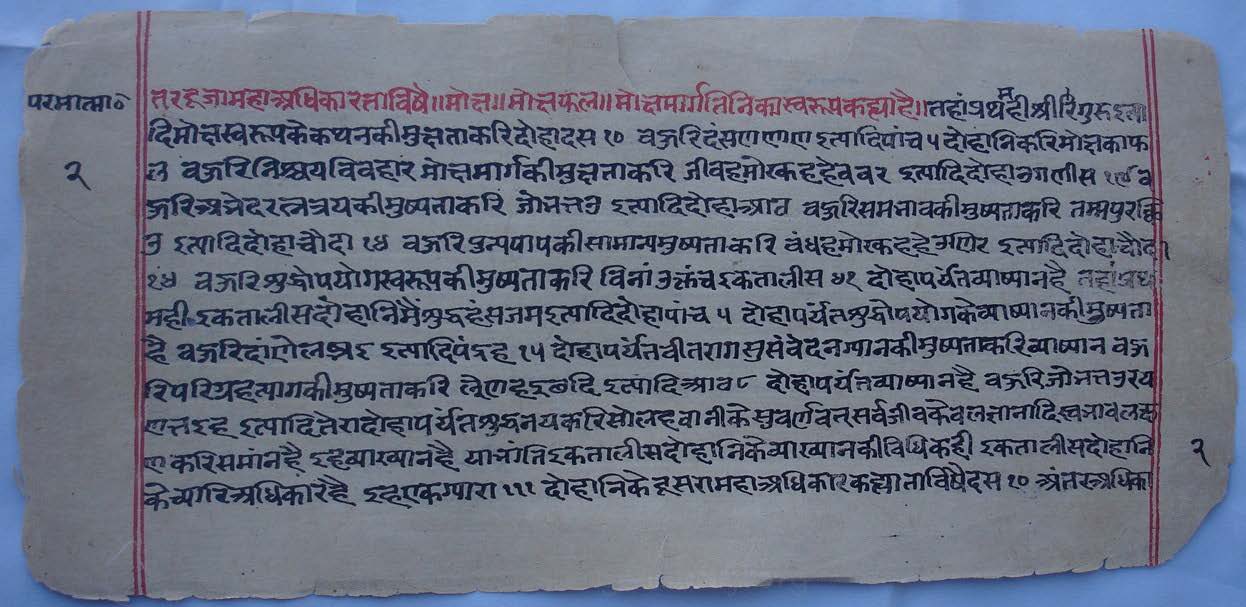 परमात्मा॰ तर दूजामहाअधिकारताविषै॥मोक्ष॥मोक्षफल॥मोक्षमार्गतिनिकास्वरूपकह्याहै॥तहांप्रथमही श्रीगुरु इत्या
२ दिमोक्षस्वरूपकेकथनकीमुक्षताकरिदोहादस १० बऊरिदंसणणाण इत्यादिपांच ५ दोहानिकरिमोक्षकाफ
ल बऊरिनिश्चयविवहार मोक्षमार्गकीमुक्षताकरि जीवहमोरकहहेववर इत्यादिदोहाउगलीस १९ ब
ऊरिअभेदरत्नत्रयकीमुष्यताकरि जोभत्तउ इत्यादिदोहाआठ बऊरिसमभावकीमुष्यताकरि तम्मपुरक्कि
उ इत्यादिदोहाचौदा १४ बऊरिपुन्यपापकीसामान्यमुष्यताकरि बंधहमोरकहहेउणि इत्यादिदोहाचौदा
१४ बऊरिशुद्धोपयोगस्वरूपकीमुष्यताकरि विनांउक्तंचइकतालीस ४१ दोहापर्यंतव्याष्यानहै तहांप्रथ
मही इकतालीसदोहानिमैंशुद्धहंसजमइत्यादिदोहापांच ५ दोहापर्यंतशुद्धोपयोगकेव्याष्यानकीमुष्यता
है बऊरिदांणेलब्भइ इत्यादिपंद्रह १५ दोहापर्यंतवीतरागसुसंवेदनग्यानकीमुष्यताकरिव्याष्यान बऊ
रिपरिग्रहत्यागकीमुष्यताकरि लेणहइछदि इत्यादिआठ ८ दोहापर्यंतव्याष्यानहै बऊरिजोभत्तउरय
णत्तइह इत्यादितेरादोहापर्यंतशुद्धनयकरिसोलहवानीकेसुवर्णवत्सर्वजीवकेवलज्ञानादिस्वभावलक्ष
णकरिसमांनहै इहव्याख्यानहै याभांतिइकतालीसदोहानिकेव्याख्यानकीविधिकही इकतालीसदोहानि २
केच्यारिअधिकारहै इहएकग्यारा १११ दोहानिकेदूसरामहाअधिकारकह्याताविषैदस १० अंतरअधिका